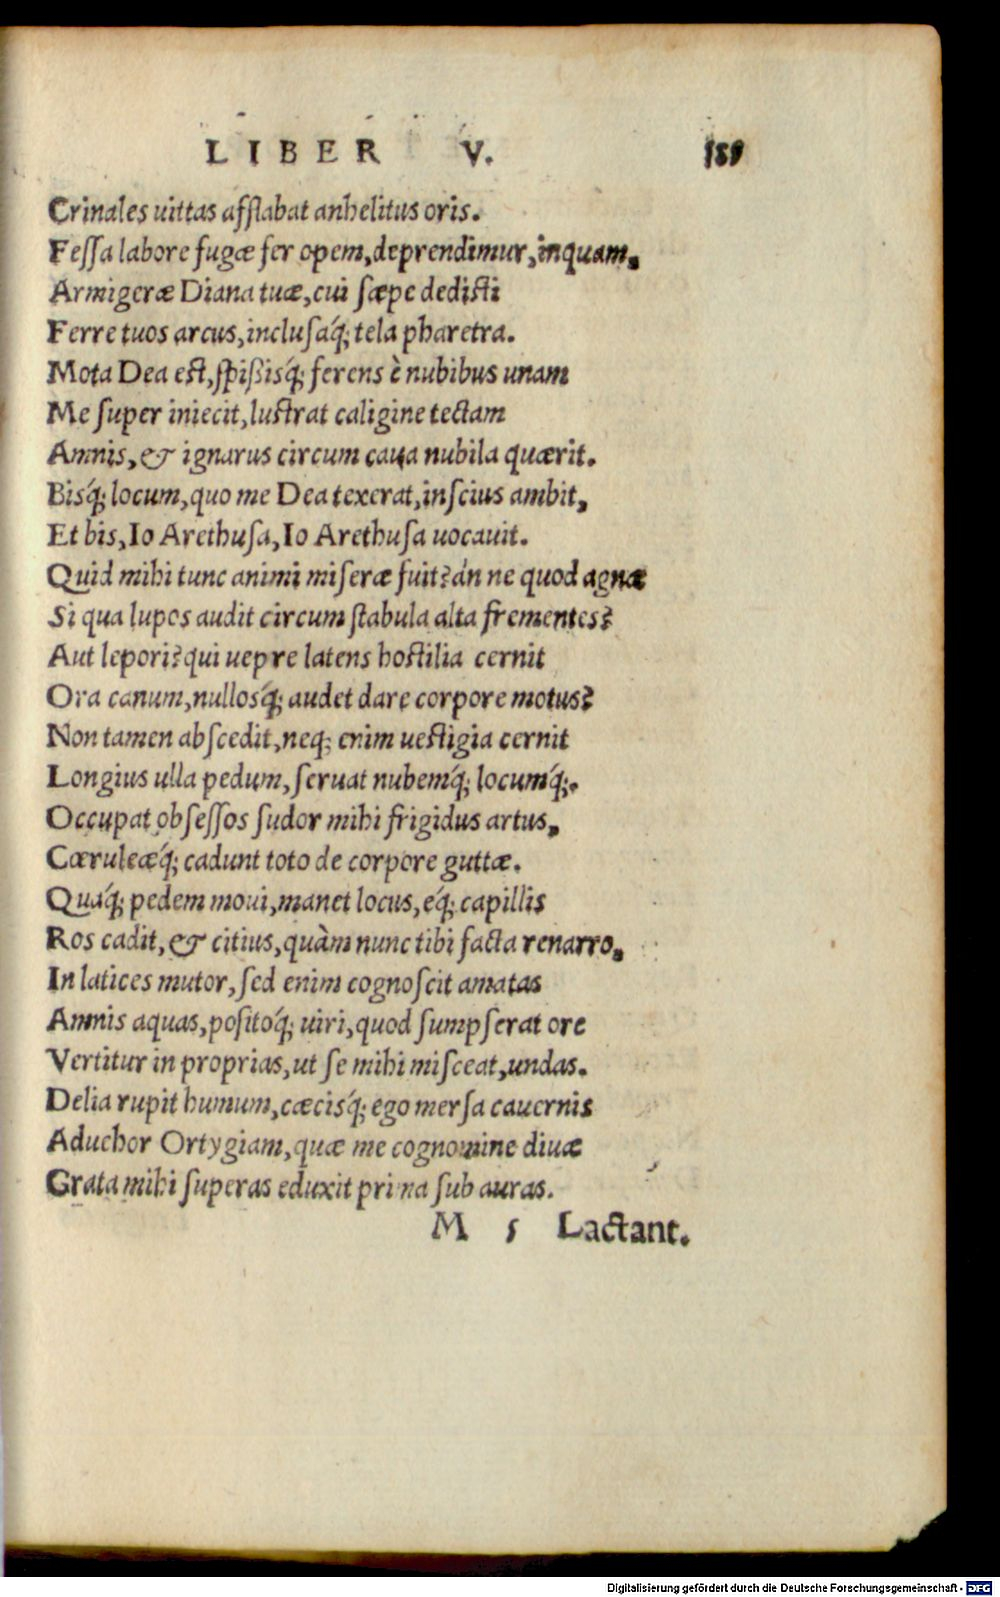 LIBER V. 189
Crinales uittas afflabat anhelitus oris.
Feſſa labore fugæ fer opem, deprendimur, inquam,
Armigeræ Diana tuæ, cui ſæpe dediſti
Ferre tuos arcus, incluſaq́; tela pharetra.
Mota Dea eſt, ſpißisq́; ferens è nubibus unam
Me ſuper iniecit, luſtrat caligine tectam
Amnis, & ignarus circum caua nubila quærit.
Bisq́; locum, quo me Dea texerat, inſcius ambit,
Et bis, Io Arethuſa, Io Arethuſa uocauit.
Quid mihi tunc animi miſeræ fuit? án ne quod agnæ
Si qua lupos audit circum ſtabula alta frementes?
Aut lepori? qui uepre latens hoſtilia cernit
Ora canum, nullosq́; audet dare corpore motus?
Non tamen abſcedit, neq; enim ueſtigia cernit
Longius ulla pedum, ſeruat nubemq́; locumq́;.
Occupat obſeſſos ſudor mihi frigidus artus,
Cæruleæq́; cadunt toto de corpore guttæ.
Quaq́; pedem moui, manet locus, eq́; capillis
Ros cadit, & citius, quàm nunc tibi facta renarro,
In latices mutor, ſed enim cognoſcit amatas
Amnis aquas, poſitoq́; uiri, quod ſumpſerat ore
Vertitur in proprias, ut ſe mihi miſceat, undas.
Delia rupit humum, cæcisq́; ego merſa cauernis
Aduehor Ortygiam, quæ me cognomine diuæ
Grata mihi ſuperas eduxit prima ſub auras.
M 5 Lactant.
Digitalisierung gefördert durch die Deutsche Forschungsgemeinschaft - DFG